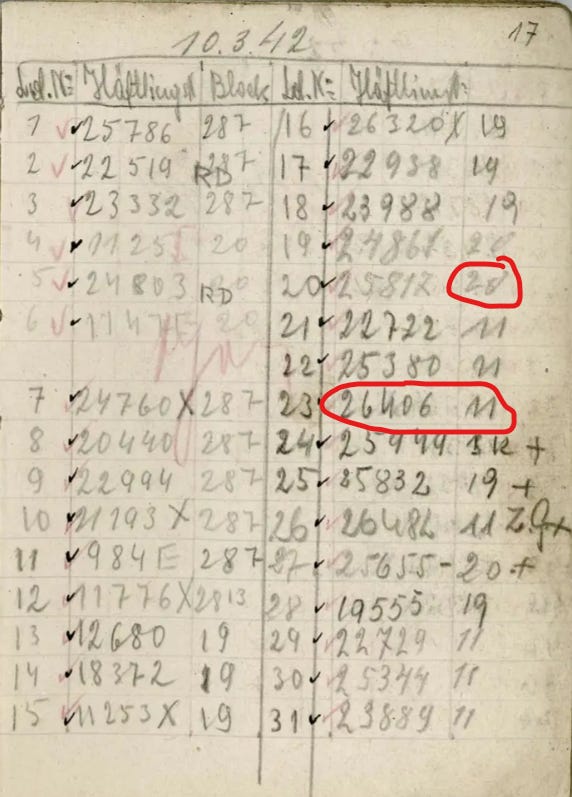 10.3.42
17
Lfd. N= Häftlings№ Block Lfd. N= Häftlings№
1 25786 287
2 22519 287 RD
3 23332 287
4 20
5 24803 RD
6 20
7 24760 X 287
8 20440 287
9 22994 287
10 11193 X 287
11 984 E 287
12 11776 X 2813
13 12680 19
14 18372 19
15 11253 X 19
16 26320 X 19
17 22938 19
18 23988 19
19
20 25817
21 22722 11
22 25380 11
23 26406 11
24 25949 SK +
25 25832 19 +
26 26482 11 Z.G+
27 25655 - 20 +
28 19555 19
29 22729 11
30 25344 11
31 23889 11